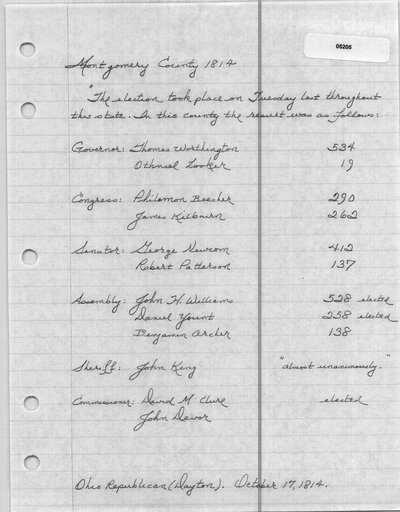 05205
Montgomery County 1814
"The election took place on Tuesday last throughout
this state. In this county the result was as follows:
Governor: Thomas Worthington 534
Othniel Looker 19
Congress: Philemon Beecher 290
James Kilbourn 262
Senator: George Newcom 412
Robert Patterson 137
Assembly: John H. Williams 528 elected
Daniel Yount 258 elected
Benjamin Archer 138
Sheriff: John King "almost unanimously."
Commissioner: David M. Clure elected
John Devor
Ohio Republican (Dayton). October 17, 1814.